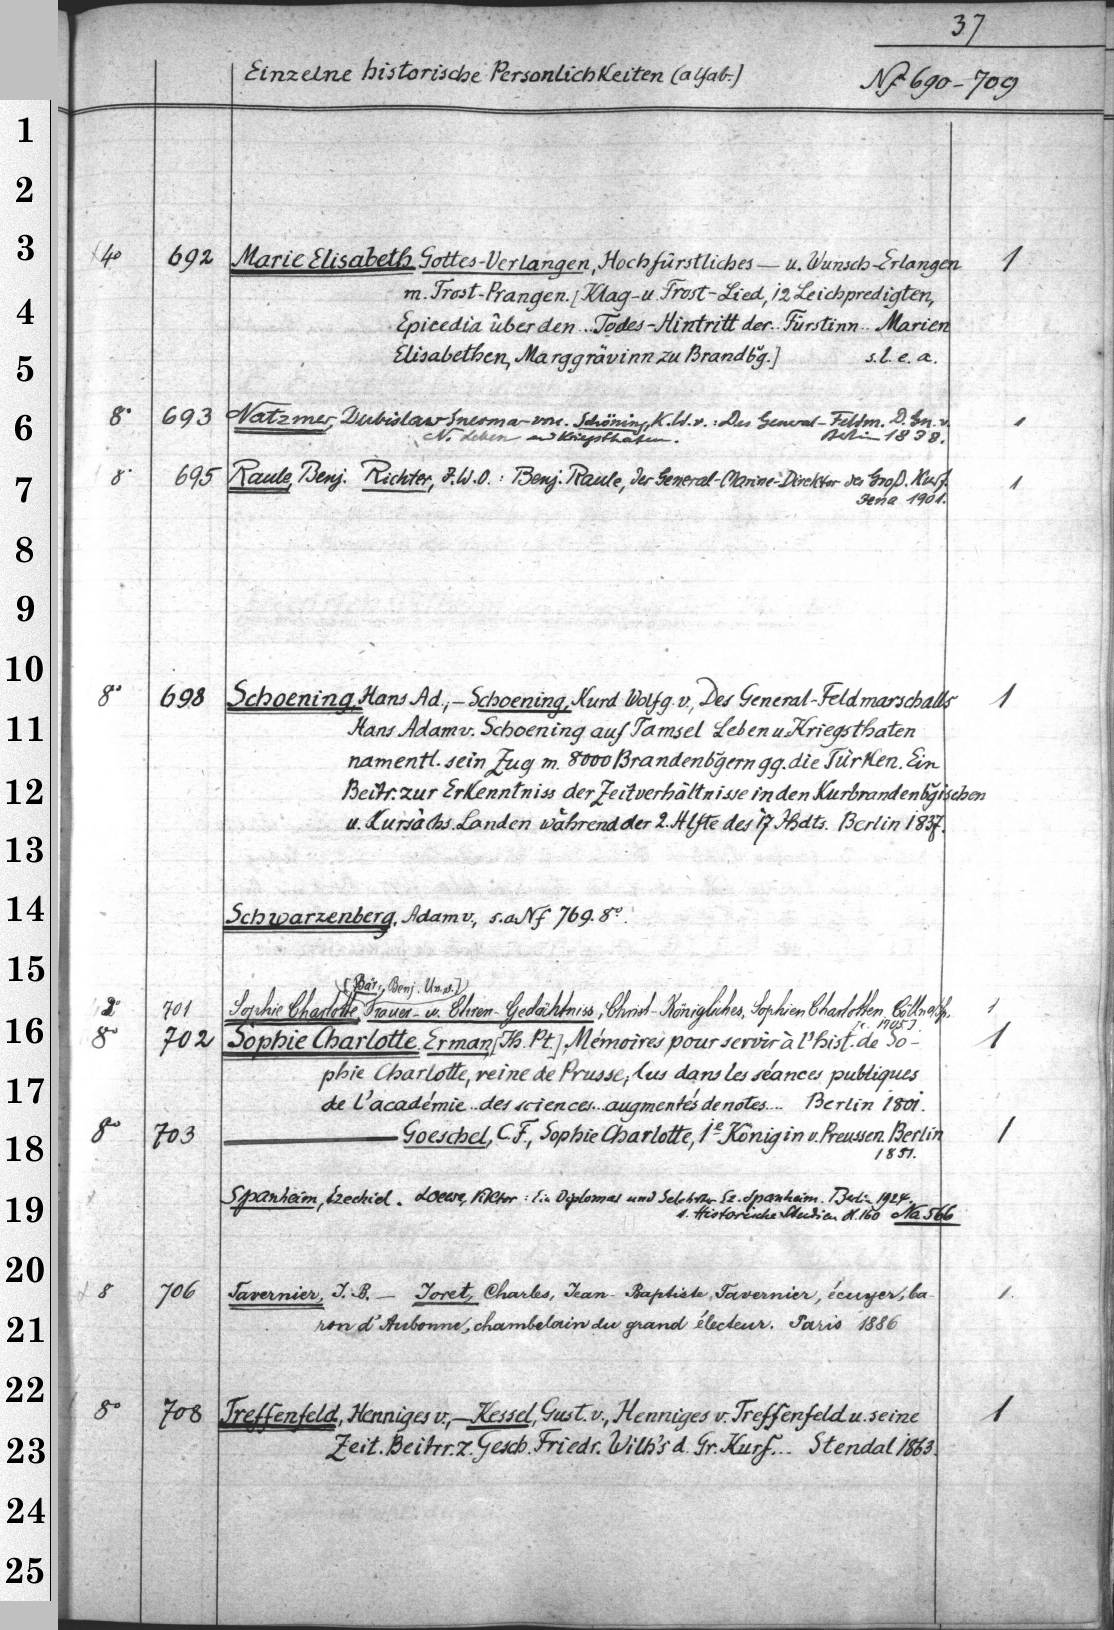 37
Einzelne historische Persönlichkeiten (alfab.)
Nf 690-709
1
2
3
4
5
6
7
8
9
10
11
12
13
14
15
16
17
18
19
20
21
22
23
24
25
4° 692 Marie Elisabeth Gottes-Verlangen, Hochfürstliches — u. Wunsch-Erlangen 1
m. Trost-Prangen. [Klag- u. Trost-Lied, 12 Leichpredigten,
Epicedia über den .. Todes-Hintritt der .. Fürstinn .. Marien
Elisabethen, Marggrävinn zu Brandb'g.] s. l. e. a.
8° 693 Natzmer, Dubislaw v. Schöning, K. W. v. : Des General-Feldm. D. Gn. v. 1
N. Leben und Kriegsthaten. Berlin 1838.
8° 695 Raule, Benj. Richter, J. W. O. : Benj. Raule, der General-Marine-Direktor des Groß. Kurf. 1
Jena 1901.
8° 698 Schoening, Hans Ad., — Schoening, Kurd Wolfg. v., Des General-Feldmarschalls 1
Hans Adam v. Schoening auf Tamsel Leben u. Kriegsthaten
namentl. sein Zug m. 8000 Brandenb'gern gg. die Türken. Ein
Beitr. zur Erkenntniss der Zeitverhältnisse in den Kurbrandenb'gischen
u. Kursächs. Landen während der 2. Hlfte des 17 Jhdts. Berlin 1837.
Schwarzenberg, Adam v., s. a. Nf 769. 8°.
[Bär, Benj. Urs.]
2° 701 Sophie Charlotte, Trauer- u. Ehren-Gedächtniss, Christ-Königliches, Sophien Charlotten, Cölln a/Sp. 1
[c. 1705].
8° 702 Sophie Charlotte. Erman, [Th. Pt.], Mémoires pour servir à l'hist. de So- 1
phie Charlotte, reine de Prusse, lus dans les séances publiques
de l'académie .. des sciences .. augmentés de notes .... Berlin 1801.
8° 703 ——— Goeschel, C. F., Sophie Charlotte, 1e Königin v. Preussen. Berlin 1
1851.
Spanheim, Ezechiel. Loewe, Viktor : Ein Diplomat und Gelehrter Ez. Spanheim. Berlin 1924.
s. Historische Studien H. 160 Na 566
8 706 Tavernier, J. B. — Joret, Charles, Jean-Baptiste Tavernier, écuyer, ba- 1.
ron d'Aubonne, chambelain du grand électeur. Paris 1886
8° 708 Treffenfeld, Henniges v., — Kessel, Gust. v., Henniges v. Treffenfeld u. seine 1
Zeit. Beitrr. z. Gesch. Friedr. Wilh's d. Gr. Kurf... Stendal 1863.